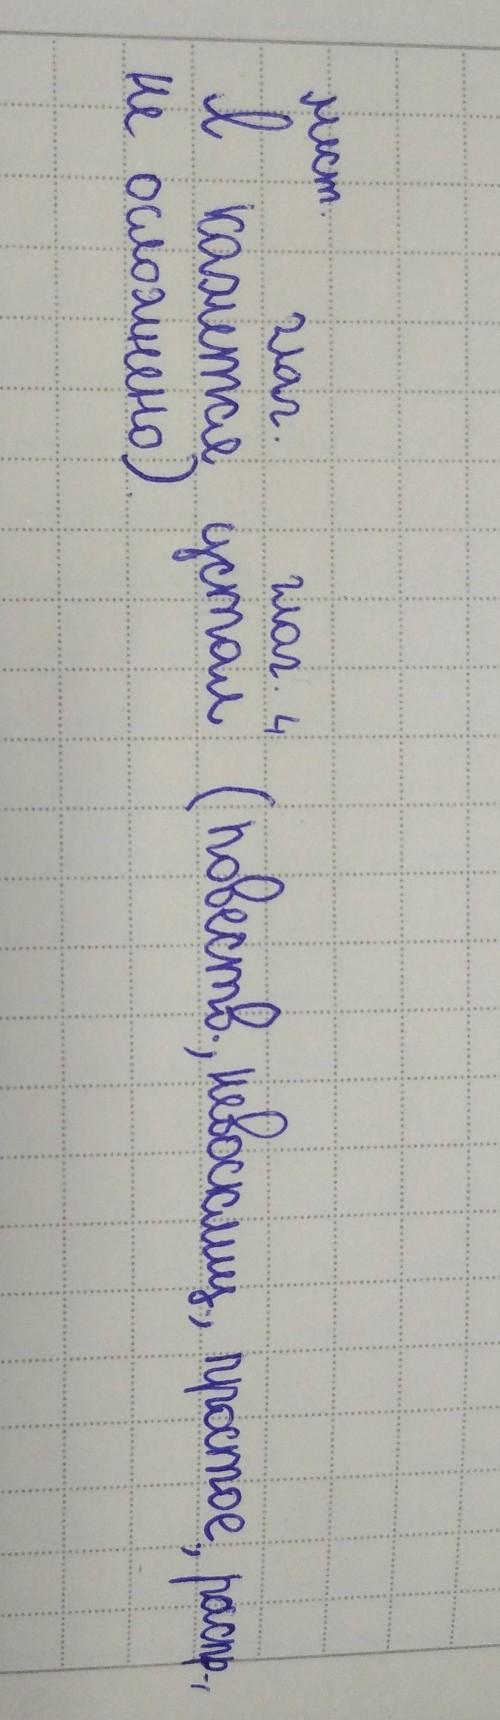 мест. глаг. глаг. 4
Я кажется устал (повеств., невосклиц., простое, распр.,
не осложнено)